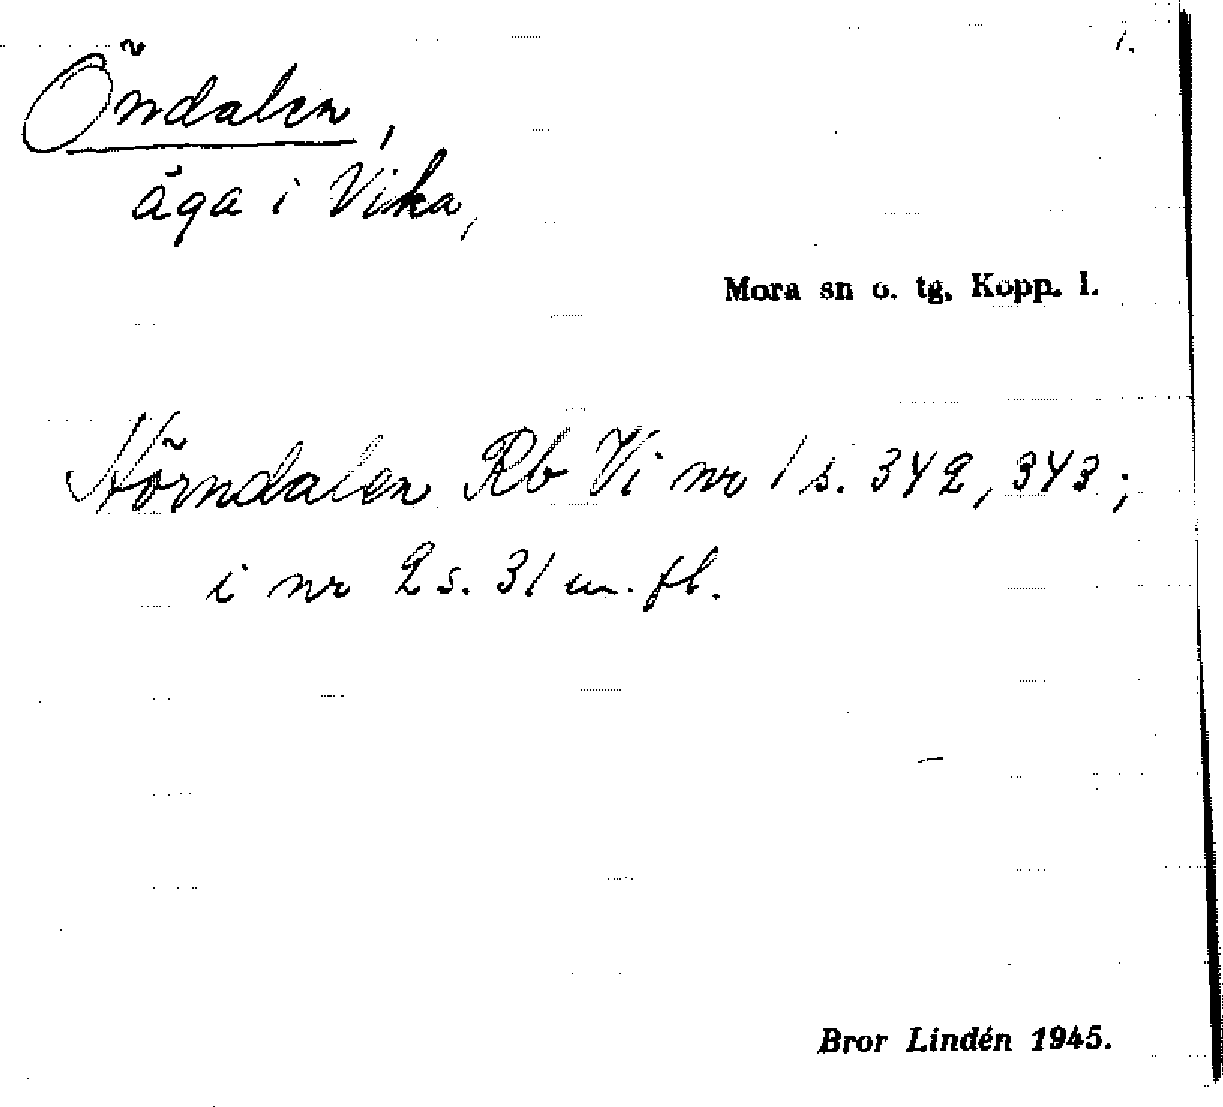 1.
Öndalen,
äga i Vika,
Mora sn o. tg. Kopp. l.
Hörndalen Rb Vi nr 1 s. 342, 343;
i nr 2 s. 31 m. fl.
Bror Lindén 1945.